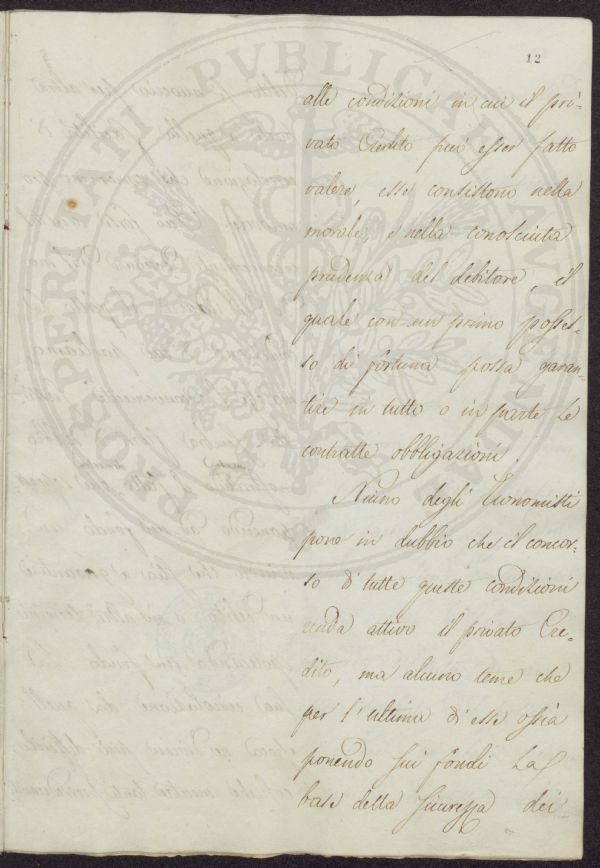 12
alle condizioni in cui il pri-
vato Credito può esser fatto
valere, esse consistono nella
morale, e nella conosciuta
prudenza del debitore, il
quale con un primo posses-
so di fortuna possa garan-
tire in tutto o in parte le
contratte obbligazioni.
Niuno degli Economisti
pone in dubbio che il concor-
so di tutte queste condizioni
renda attivo il privato Cre-
dito, ma alcuno teme che
per l'ultima di esse ossia
ponendo sui fondi la
base della sicurezza dei
PROSPERITATI PVBLICAE AVGENDAE